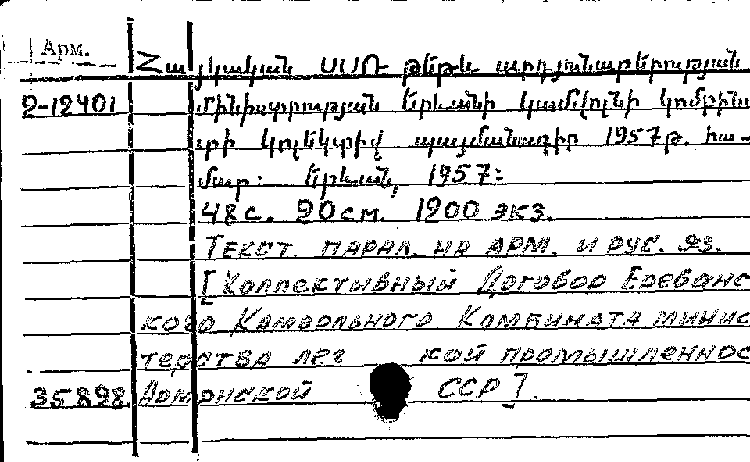 Арм.
Հայկական ՍՍՌ թեթև արդյունաբերության
2-12401 մինիստրության Երևանի կամվոլնի կոմբինա
տի կոլեկտիվ պայմանագիր 1957թ. հա-
մար: Երևան, 1957:
48 с. 20 см. 1200 экз.
Текст. парал. на арм. и рус. яз.
[Коллективный Договор Ереванс
кого Камвольного Комбината минис
терства лег кой промышленнос
35898 Армянской ССР].